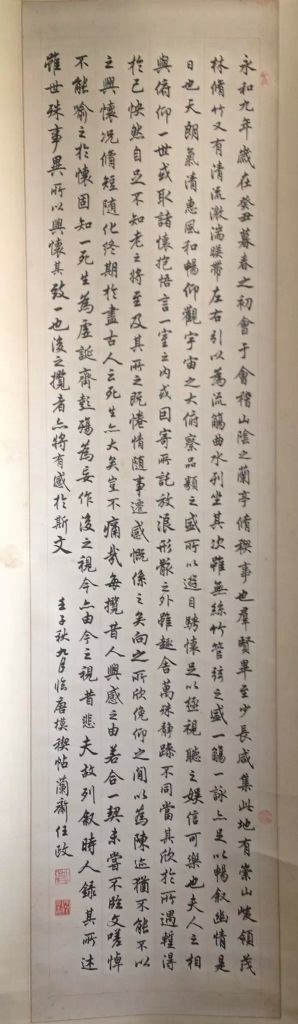 永和九年歲在癸丑暮春之初會于會稽山陰之蘭亭脩稧事也羣賢畢至少長咸集此地有崇山峻領茂
林脩竹又有清流激湍暎帶左右引以為流觴曲水列坐其次雖無絲竹管弦之盛一觴一詠亦足以暢敘幽情是
日也天朗氣清惠風和暢仰觀宇宙之大俯察品類之盛所以遊目騁懷足以極視聽之娛信可樂也夫人之相
與俯仰一世或取諸懷抱悟言一室之內或因寄所託放浪形骸之外雖趣舍萬殊靜躁不同當其欣於所遇蹔得
於己怏然自足不知老之將至及其所之既惓情隨事遷感慨係之矣向之所欣俛仰之間以為陳迹猶不能不以
之興懷況脩短隨化終期於盡古人云死生亦大矣豈不痛哉每攬昔人興感之由若合一契未嘗不臨文嗟悼
不能喻之於懷固知一死生為虛誕齊彭殤為妄作後之視今亦由今之視昔悲夫故列敘時人錄其所述
雖世殊事異所以興懷其致一也後之攬者亦將有感於斯文 壬子秋九月臨唐摸稧帖蘭齋任政